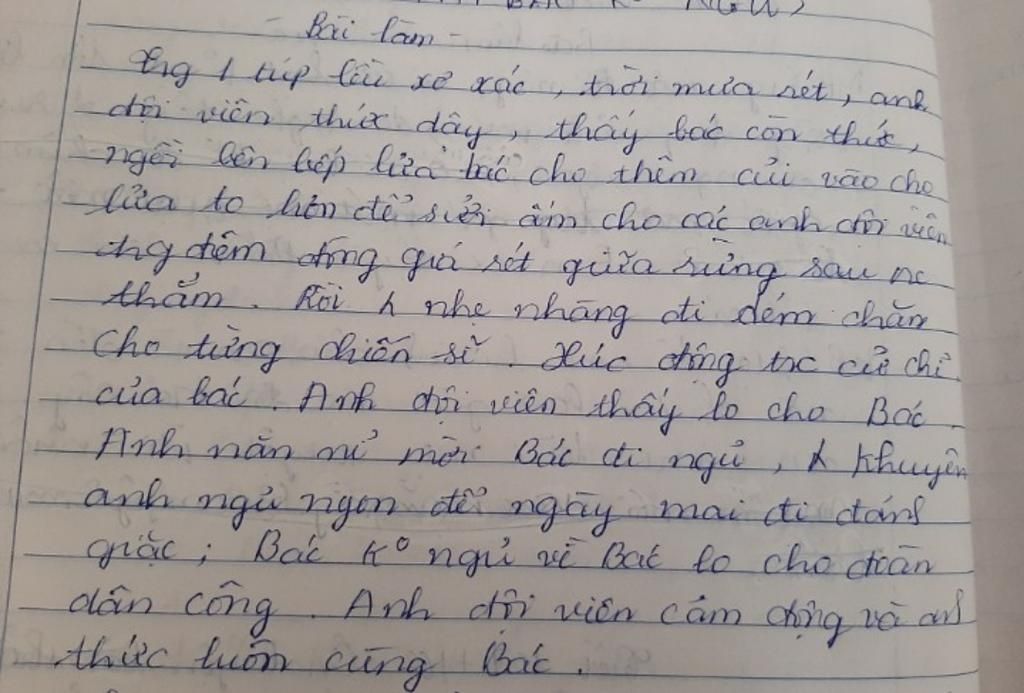 BÁC K° NGỦ)
- Bài làm -
Trg 1 túp lều xơ xác, trời mưa rét, anh
đội viên thức dậy, thấy bác còn thức,
ngồi bên bếp lửa bác cho thêm củi vào cho
lửa to hơn để sưởi ấm cho các anh đội viên
trg đêm đông giá rét giữa rừng sâu nc
thẳm. Rồi nhẹ nhàng đi dém chăn
Cho từng chiến sĩ. Xúc động trc cử chỉ
của bác. Anh đội viên thấy lo cho Bác.
Anh năn nỉ mời Bác đi ngủ, khuyên
anh ngủ ngon để ngày mai đi đánh
giặc; Bác K° ngủ vì Bác lo cho đoàn
dân công. Anh đội viên cảm động và anh
thức luôn cùng Bác.